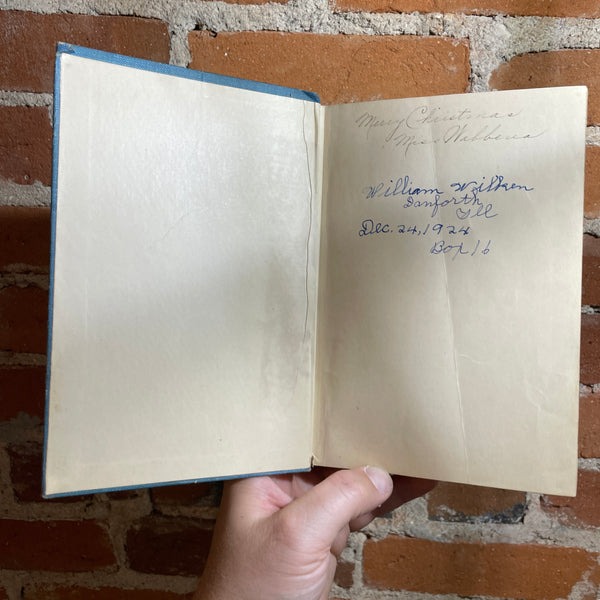 Merry Christmas
Mrs. Wabbena
William Wilken
Danforth
Ill
Dec. 24, 1924
Box 16